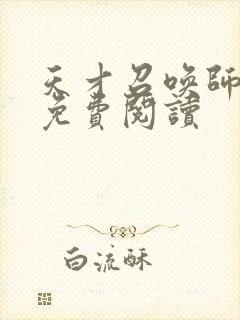 天才召喚師
免費閱讀
白流酥